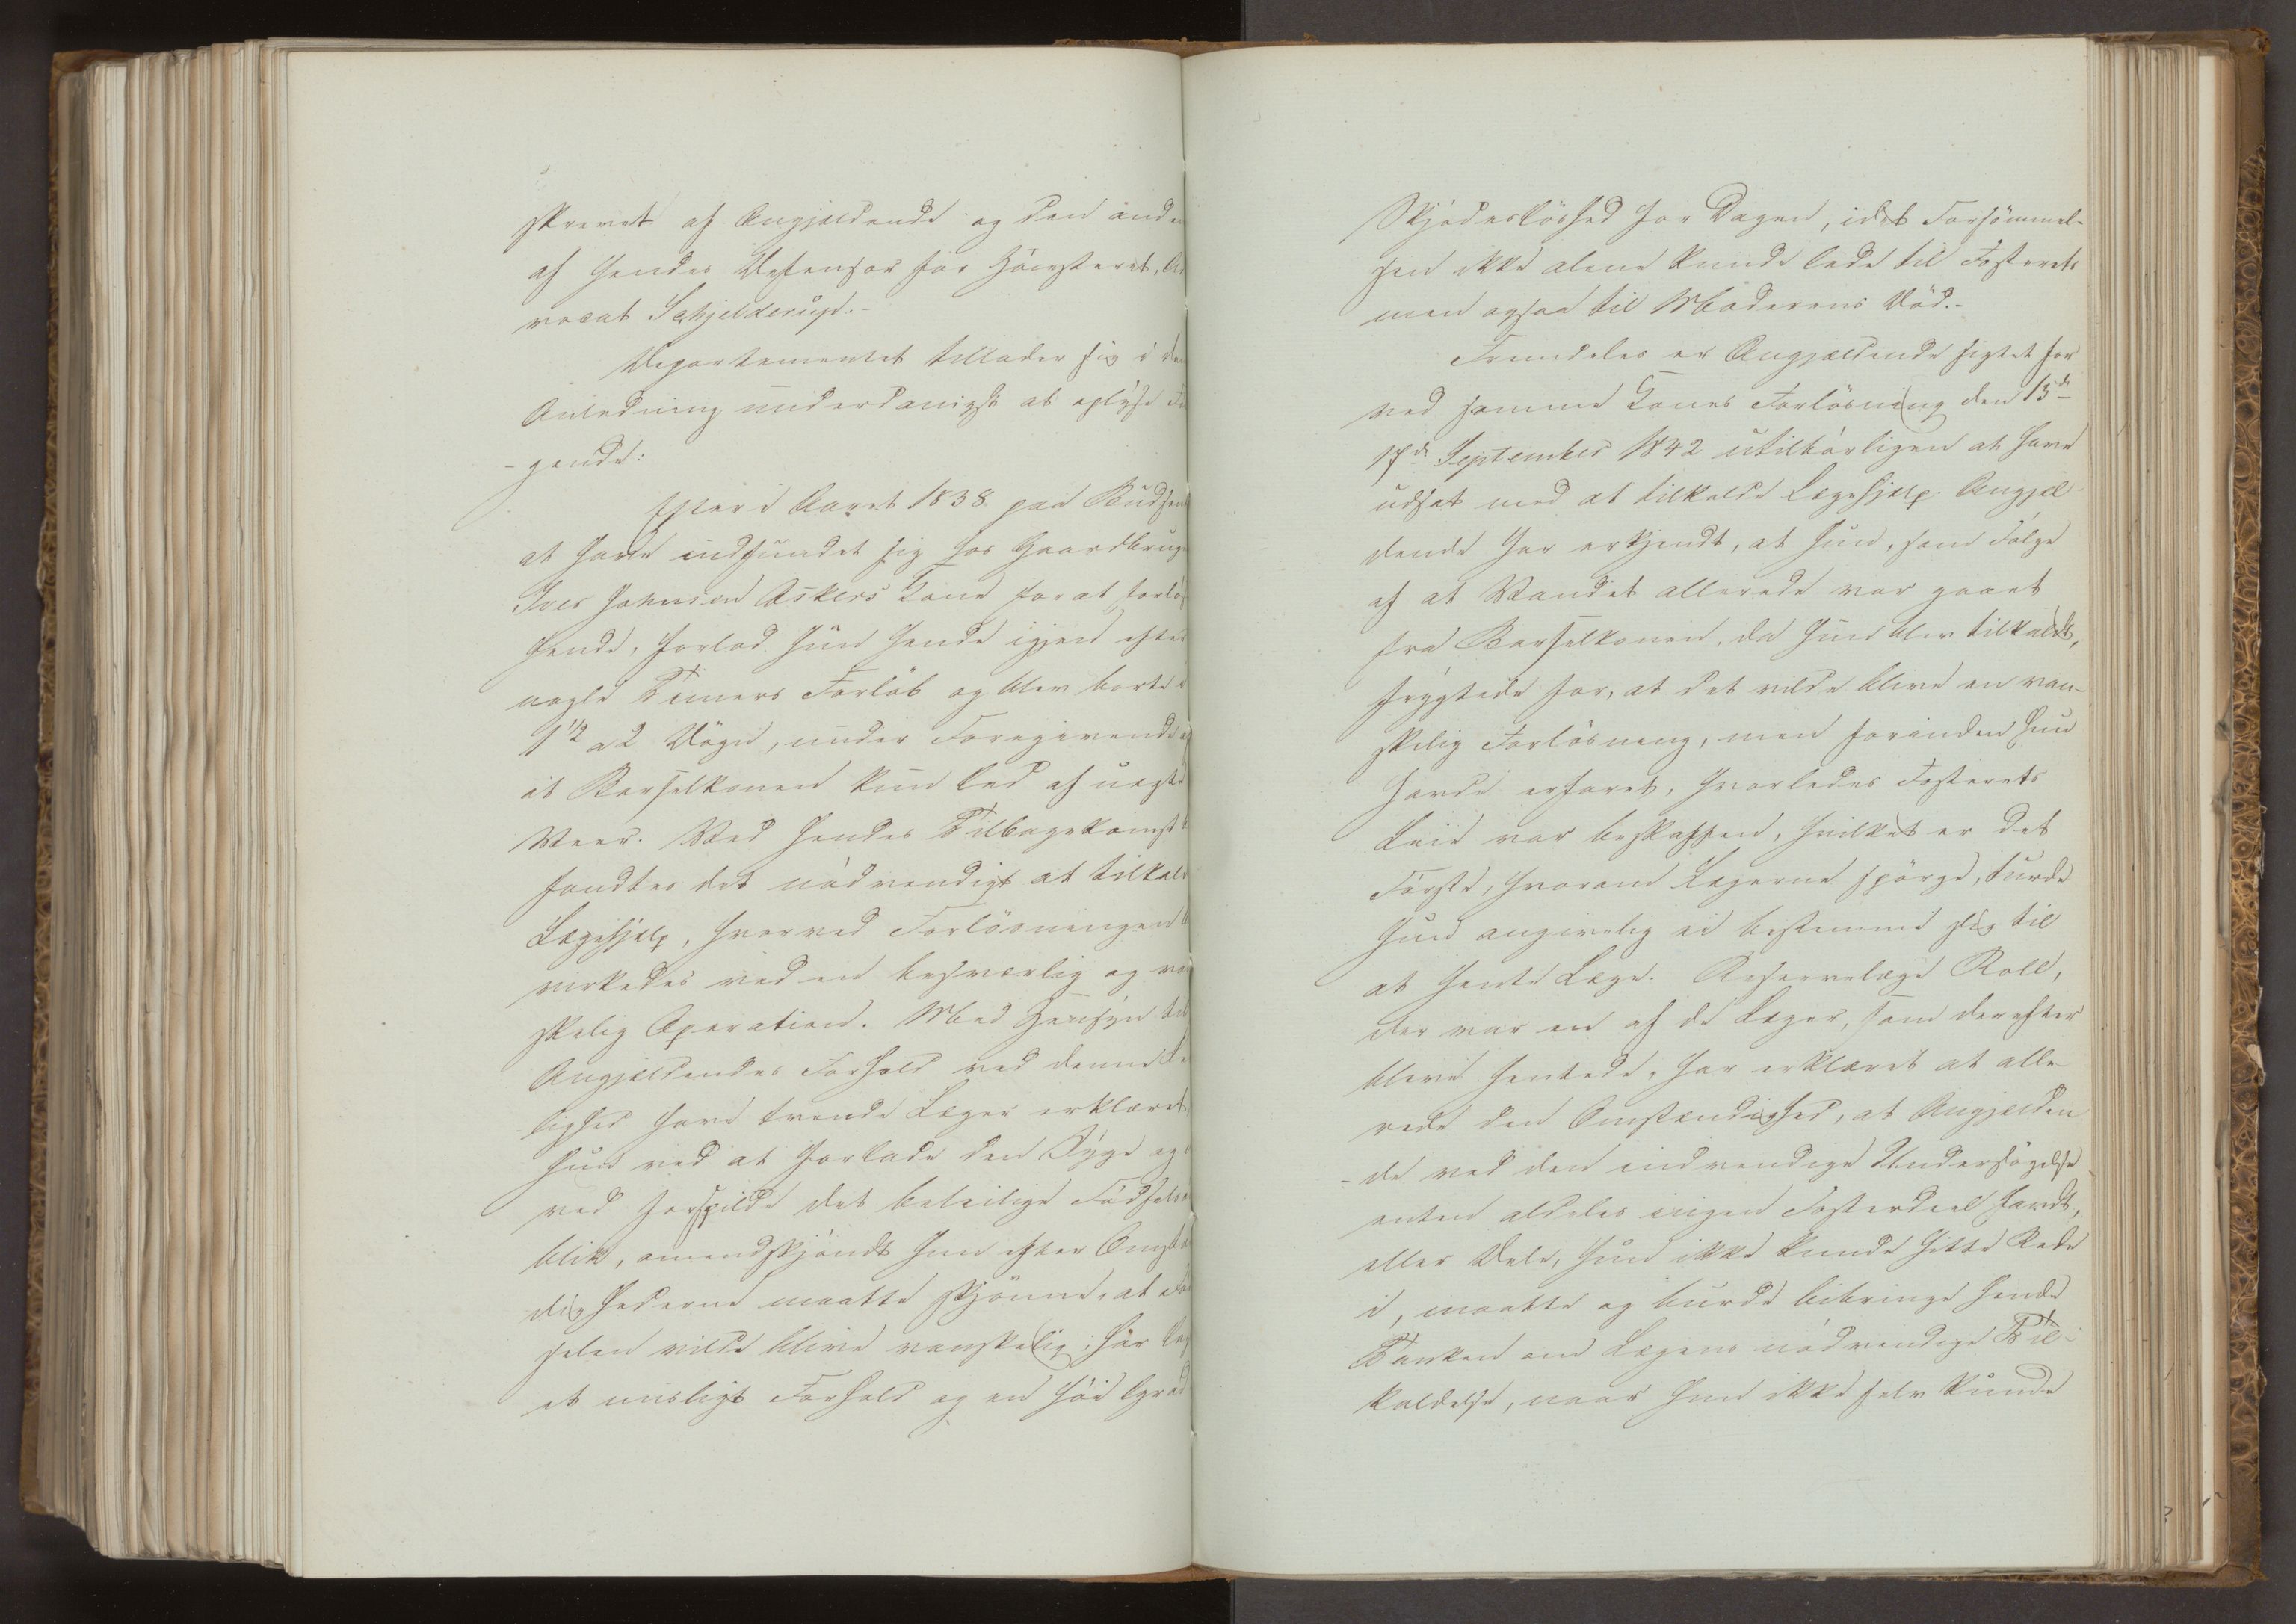 skrevet af Angjeldende og den anden
af hendes Defensor for Höiesteret, Ad
vocat Schjelderup.-
Departementet tillader sig i den
Anledning underdanigst at oplyse Føl
-gende:
Efter i Aaret 1838 paa Budsend
at have indfundet sig hos Gaardbruger
Iver Johnsen Askers Kone for at forløs
hende, forlod hun hende igjen efter
nogle Timers Forløb og blev borte i
1 1/2 a 2 Døgn, under Foregivende af
at Barselkonen kun led af uægte
Veer. Ved hendes Tilbagekomst
fandtes det nødvendigt at tilkald
Lægehjælp, hvorved Forløsningen be
virkedes ved en besværlig og van
skelig Operation. Med Hensyn til
Angjeldendes Forhold ved denne Lei
-lighed have tvende Læger erklæret,
hun ved at forlade den Syge og
ved forspilde det beleilige Fødselsø
blik, omendskjøndt hun efter Omstæn
dighederne maatte skjønne, at Fød
selen vilde blive vanskelig, har lag
et uusligt Forhold og en høi Grad
Skjødesløshed for Dagen, idet Forsømmel-
sen ikke alene kunde lede til Fosterets
men ogsaa til Moderens Død.-
Fremdeles er Angjældende sigtet for
ved samme Kones Forløsning den 15de
17de September 1842 utilbørligen at have
udsat med at tilkalde Lægehjælp. Angjæl-
dende har erkjendt, at hun, som Følge
af at Vandet allerede var gaaet
fra Barselkonen, da hun blev tilkaldt,
frygtede for, at det vilde blive en van-
skelig Forløsning, men forinden hun
havde erfaret, hvorledes Fosterets
Leie var beskaffen, hvilket er det
Første, hvorom Lægerne spørge, turde
hun angivelig ei bestemme sig til
at hente Læge. Reservelæge Roll,
der var en af de Læger, som derefter
bleve hentede, har erklæret at alle-
rede den Omstændighed, at Angjælden
-de ved den indvendige Undersøgelse
enten aldeles ingen Fosterdeel fandt,
eller Dele, hun ikke kunde hitte Rede
i, maatte og burde bibringe hende
Tanken om Lægens nødvendige Til-
kaldelse, naar hun ikke selv kunde